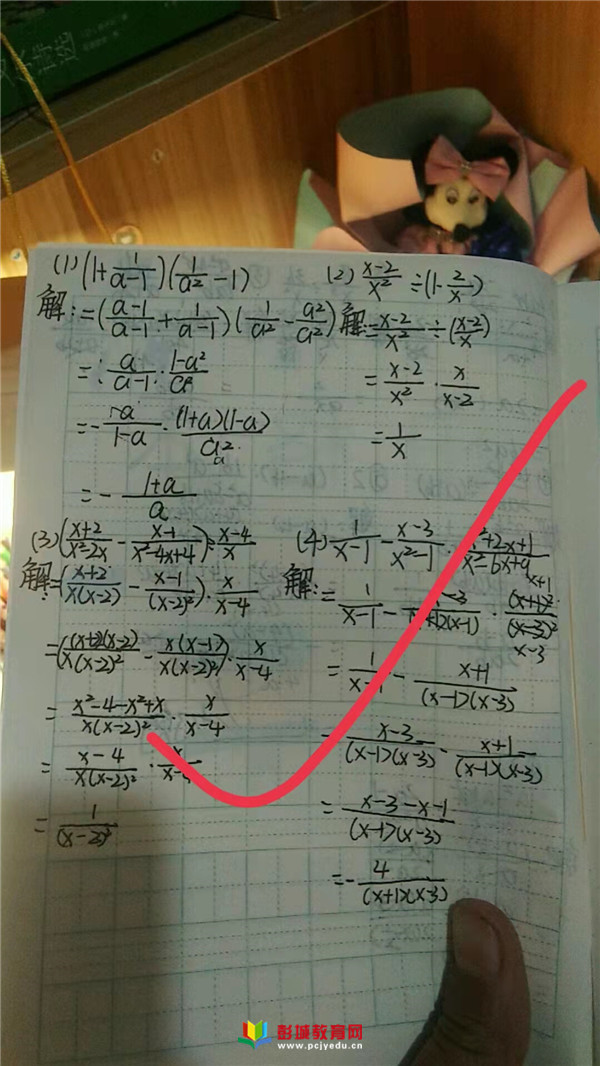 (1) (1+1/(a-1))(1/a²-1)
解:=((a-1)/(a-1)+1/(a-1))(1/a²-a²/a²)
=a/(a-1)·(1-a²)/a²
=-a/(1-a)·(1+a)(1-a)/a²
=-(1+a)/a
(2) (x-2)/x²÷(1-2/x)
解:=(x-2)/x²÷((x-2)/x)
=(x-2)/x²·x/(x-2)
=1/x
(3) ((x+2)/(x²-2x)-(x-1)/(x²-4x+4))÷(x-4)/x
解:=((x+2)/(x(x-2))-(x-1)/(x-2)²)·x/(x-4)
=((x+2)(x-2)/(x(x-2)²)-x(x-1)/(x(x-2)²))·x/(x-4)
=(x²-4-x²+x)/(x(x-2)²)·x/(x-4)
=(x-4)/(x(x-2)²)·x/(x-4)
=1/(x-2)²
(4) 1/(x-1)-(x-3)/(x²-1)·(x²+2x+1)/(x²-6x+9)
解:=1/(x-1)-(x-3)/((x+1)(x-1))·(x+1)²/(x-3)²
x+1
x-3
=1/(x-1)-(x+1)/((x-1)(x-3))
=(x-3)/((x-1)(x-3))-(x+1)/((x-1)(x-3))
=(x-3-x-1)/((x-1)(x-3))
=-4/((x+1)(x-3))
彭城教育网
www.pcjyedu.cn